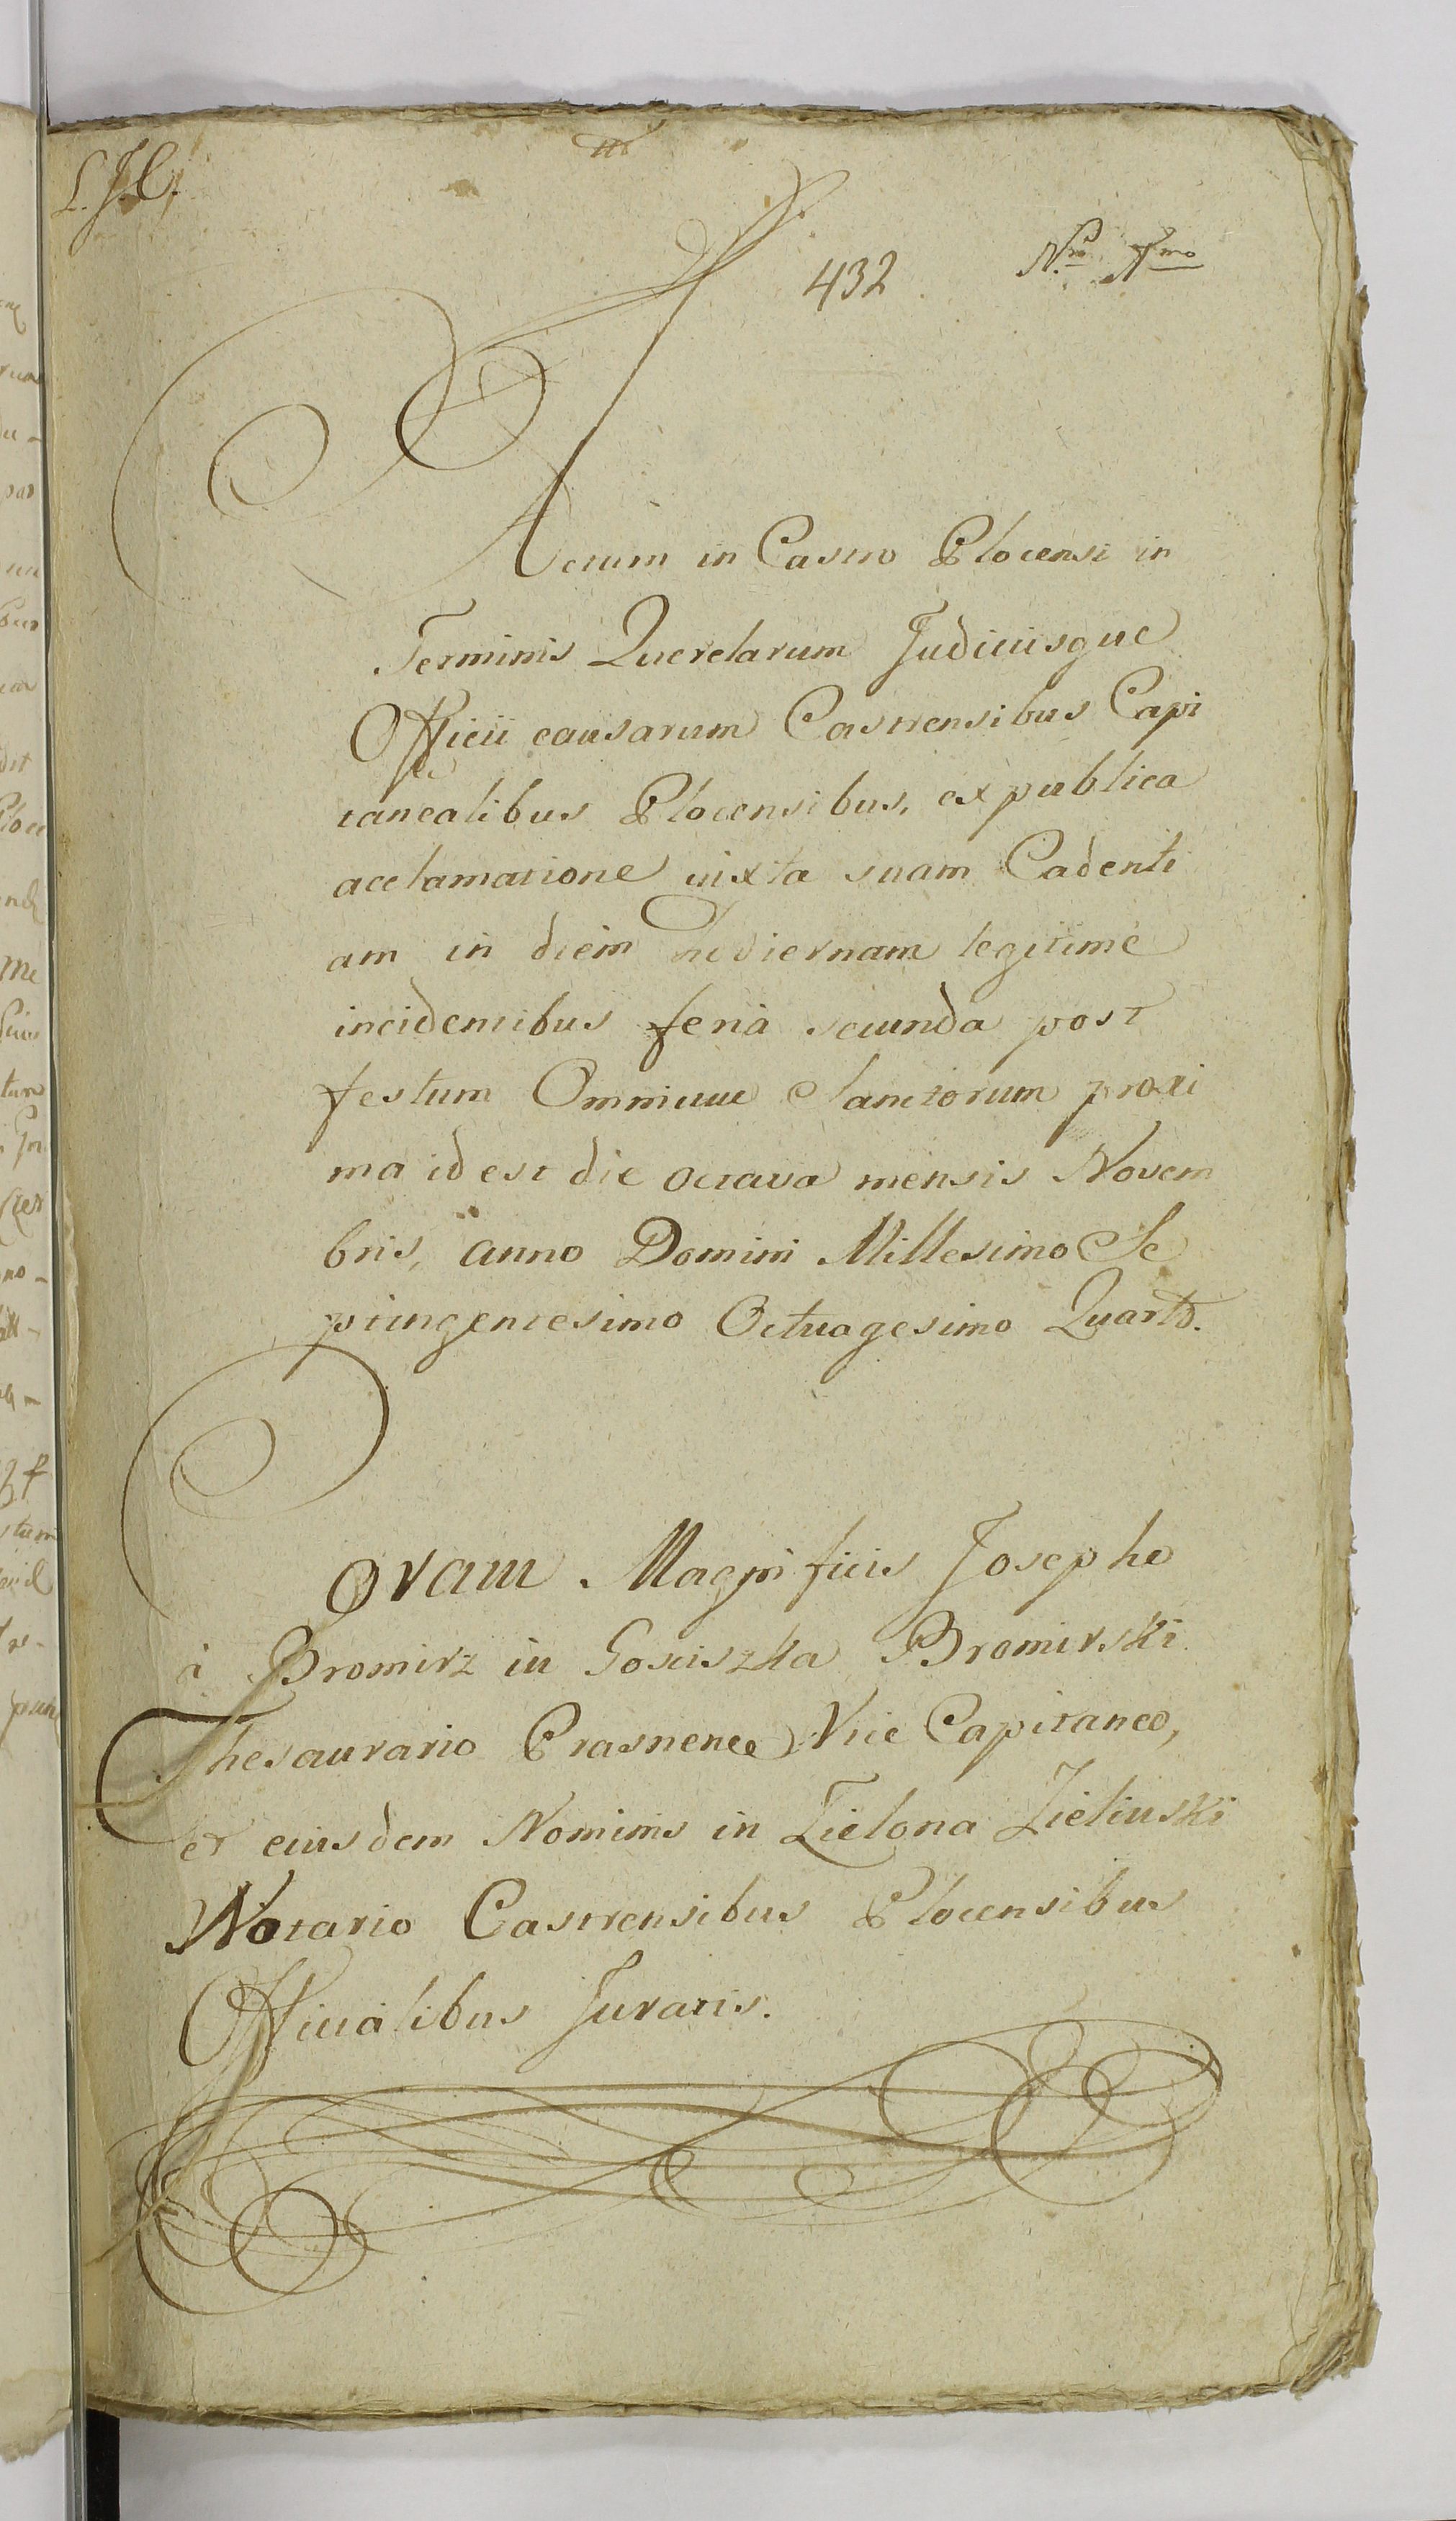 L. J. C.
432
Nro 1mo
Actum in Castro Plocensi in
Terminis Querelarum Judiciisque
Officii causarum Castrensibus Capi
tanealibus Plocensibus, ex publica
acclamatione iuxta suam Cadenti
am in diem hodiernam legitime
incidentibus feria secunda post
festum Omnium Sanctorum proxi
ma id est die octava mensis Novem
bris, anno Domini Millesimo Se
ptingentesimo Octuagesimo Quarto.
Coram Magnificis Josepho
à Bromirz in Gosciszka Bromirski
Thesaurario Prasnen Vice Capitaneo,
et eiusdem Nominis in Zielona Zielinski
Notario Castrensibus Plocensibus
Officialibus Juratis.